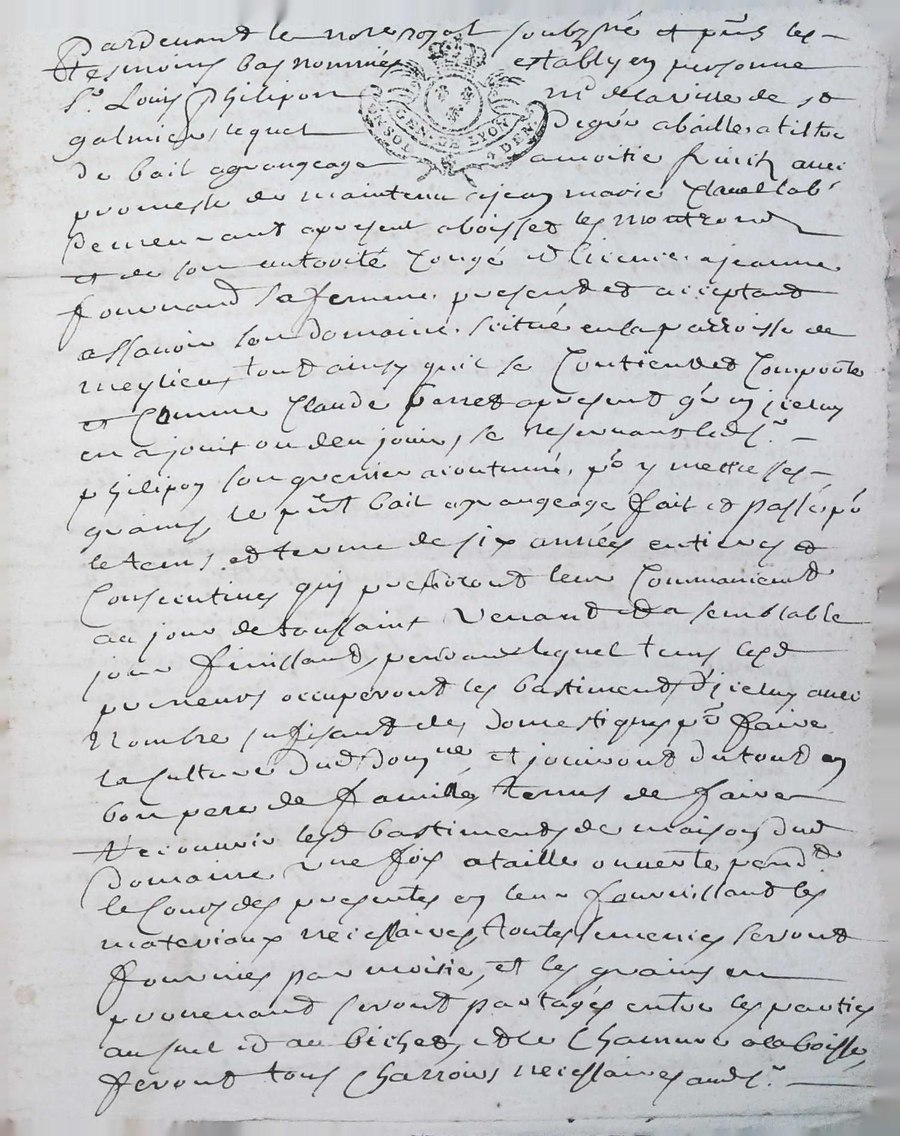 Pardevant le no.re royal soubz.né et pñs les
tesmoins bas nommés estably en personne
Sr. Louis philipon md de la ville de st
galmier, lequel degré a baillé a tiltre
de bail a grangeage a moitié fruitz avec
promesse de maintenir a jean marie Clavel lab.r
demeurant a present a boisset les montrond
et de son autorité Congé et licence, a jeanne
fournand sa femme, present et acceptant
assavoir son domaine, scitué en la parroisse de
meylieu, tout ainsy quil se Contient et Comporte
et Comme Claude perret a present g.er en jceluy
en a jouit ou deu jouir, se reservant led. Sr.
philipon son grenier acoutumé, p.r y mettre ses
grains, le pñt bail a grangeage fait et passé p.r
le tems et terme de six années entieres et
Consecutives qui prendront leur Commancement
au jour de toussaint venant et a semblable
jour finissant, pendant lequel tems lesd
preneurs occuperont les bastiments d'jceluy avec
nombre suffisant de domestiques p.r faire
la culture dud. dom.ne et jouiront du tout en
bon pere de famille, tenus de faire
recouvrir lesd bastiments de maison dud
domaine une fois a taille ouverte pend.t
le Cours des presentes en leur fournissant les
materiaux necessaires, toutes semences seront
fournies par moitié, et les grains en
provenant seront partagés entre les parties
au suel et au bichet, et le Chanvre a la boisse,
feront tous Charrois necessaires aud. Sr.
GEN. DE LYON